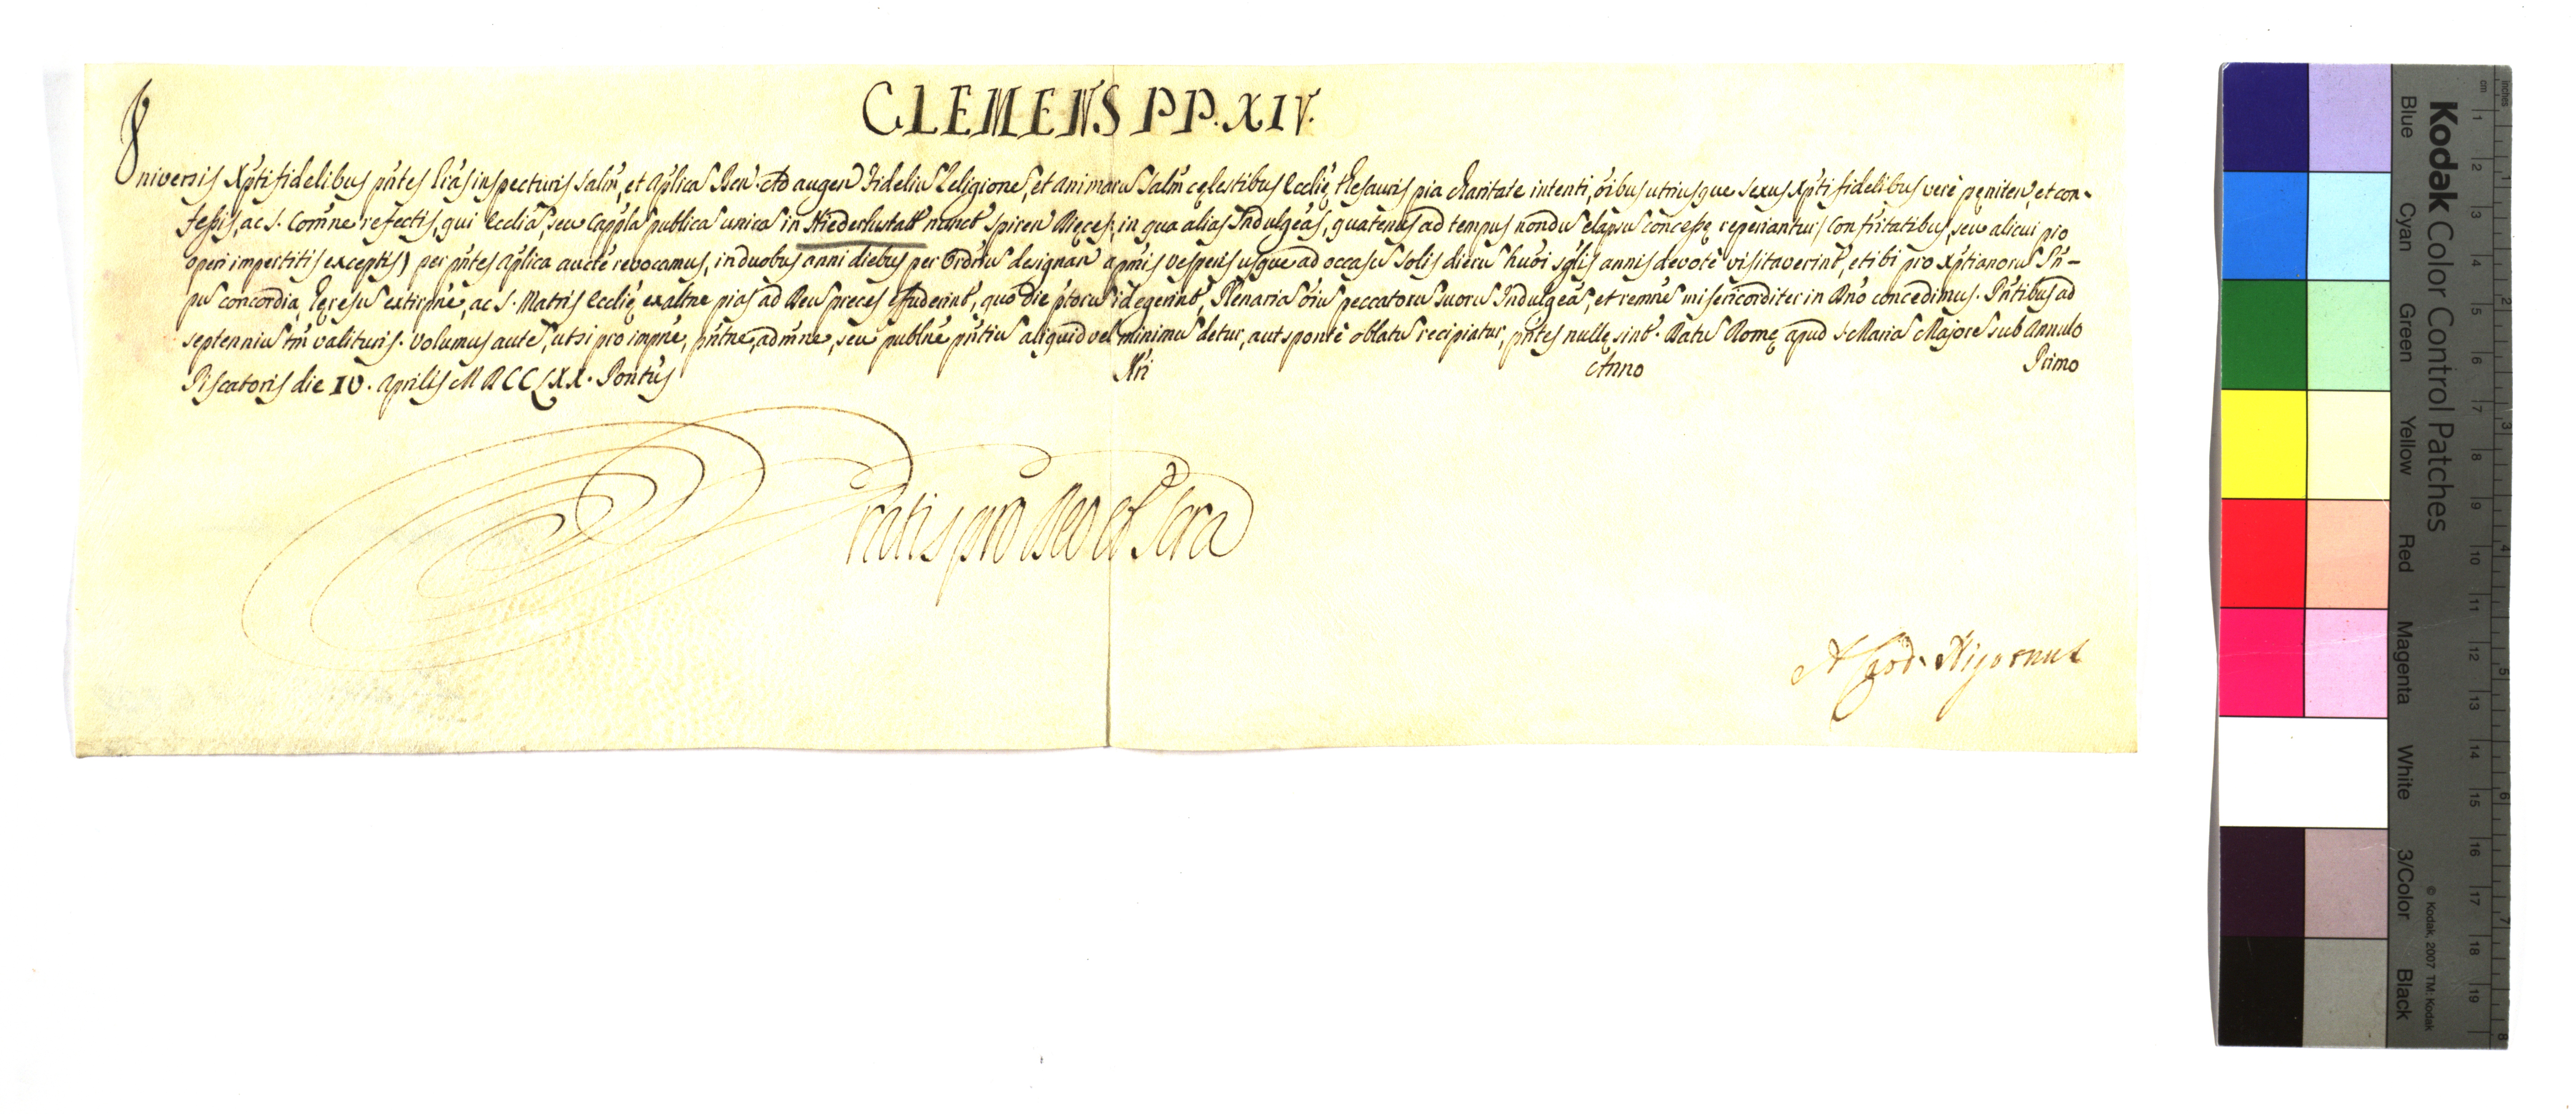 CLEMENS PP. XIV.
Universis Xpti fidelibus pntes lras inspecturis Salm, et Aplica Ben. Ad augen Fideliu Religione, et animaru Salm celestibus Ecclie thesauris pia charitate intenti, oibus utriusque sexus Xpti fidelibus vere peniten, et con-
fessis, ac S. Comne refectis, qui Ecclia, seu Cappla publica unica in Niederlustatt nunct Spiren Dieces, in qua alias Indulgeas, quatenus ad tempus nondu elapsu concesse reperiantur, Confritatibus, seu alicui pio
operi impertitis exceptis) per pntes aplica aucte revocamus, in duobus anni diebus per Ordriu designan a pmis vesperis usque ad occasu Solis dieru huoi sglis annis devote visitaverint, et ibi pro Xptianoru Pn-
pu concordia, heresu extirpne, ac S. Matris Ecclie exaltne pias ad Deu preces effuderint, quo die ptoru id egerint, Plenaria oiu peccatoru suoru Indulgeas, et remne misericorditer in Dno concedimus. Pntibus ad
septenniu tm valituris. Volumus aute, ut si pro impne, pntne, admne, seu publne pntiu aliquid vel minimu detur, aut sponte oblatu recipiatur, pntes nulle sint. Datu Rome apud S. Maria Majore sub Annulo
Piscatoris die IV. Aprilis MDCCLXX. Pontus Nri Anno Primo
Gratis pro Deo et Scra
A Card. Nigronus
Kodak Color Control Patches
Blue Cyan Green Yellow Red Magenta White 3/Color Black
© Kodak, 2007 TM: Kodak
inches 1 2 3 4 5 6 7 8
cm 1 2 3 4 5 6 7 8 9 10 11 12 13 14 15 16 17 18 19